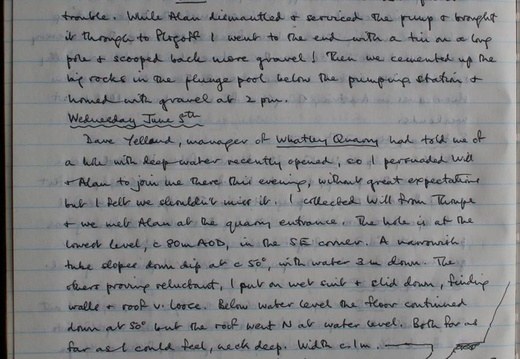 trouble. While Alan dismantled & serviced the pump & brought
it through to Ployoff I went to the end with a tin on a long
pole & scooped back more gravel! Then we cemented up the
big rocks in the plunge pool below the pumping station &
homed with gravel at 2 pm.
Wednesday June 5th
Dave Yelland, manager of Whatley Quarry had told me of
a hole with deep water recently opened, so I persuaded Will
& Alan to join me there this evening, without great expectations
but I felt we shouldn't miss it. I collected Will from Thrupe
& we met Alan at the quarry entrance. The hole is at the
lowest level, c 90m AOD, in the SE corner. A narrowish
tube slopes down dip at c 50°, with water 3m down. The
others proving reluctant, I put on wet suit & slid down, finding
walls & roof v. loose. Below water level the floor continued
down at 50° but the roof went N at water level. Both far as
far as I could feel, neck deep. Width c.1m.